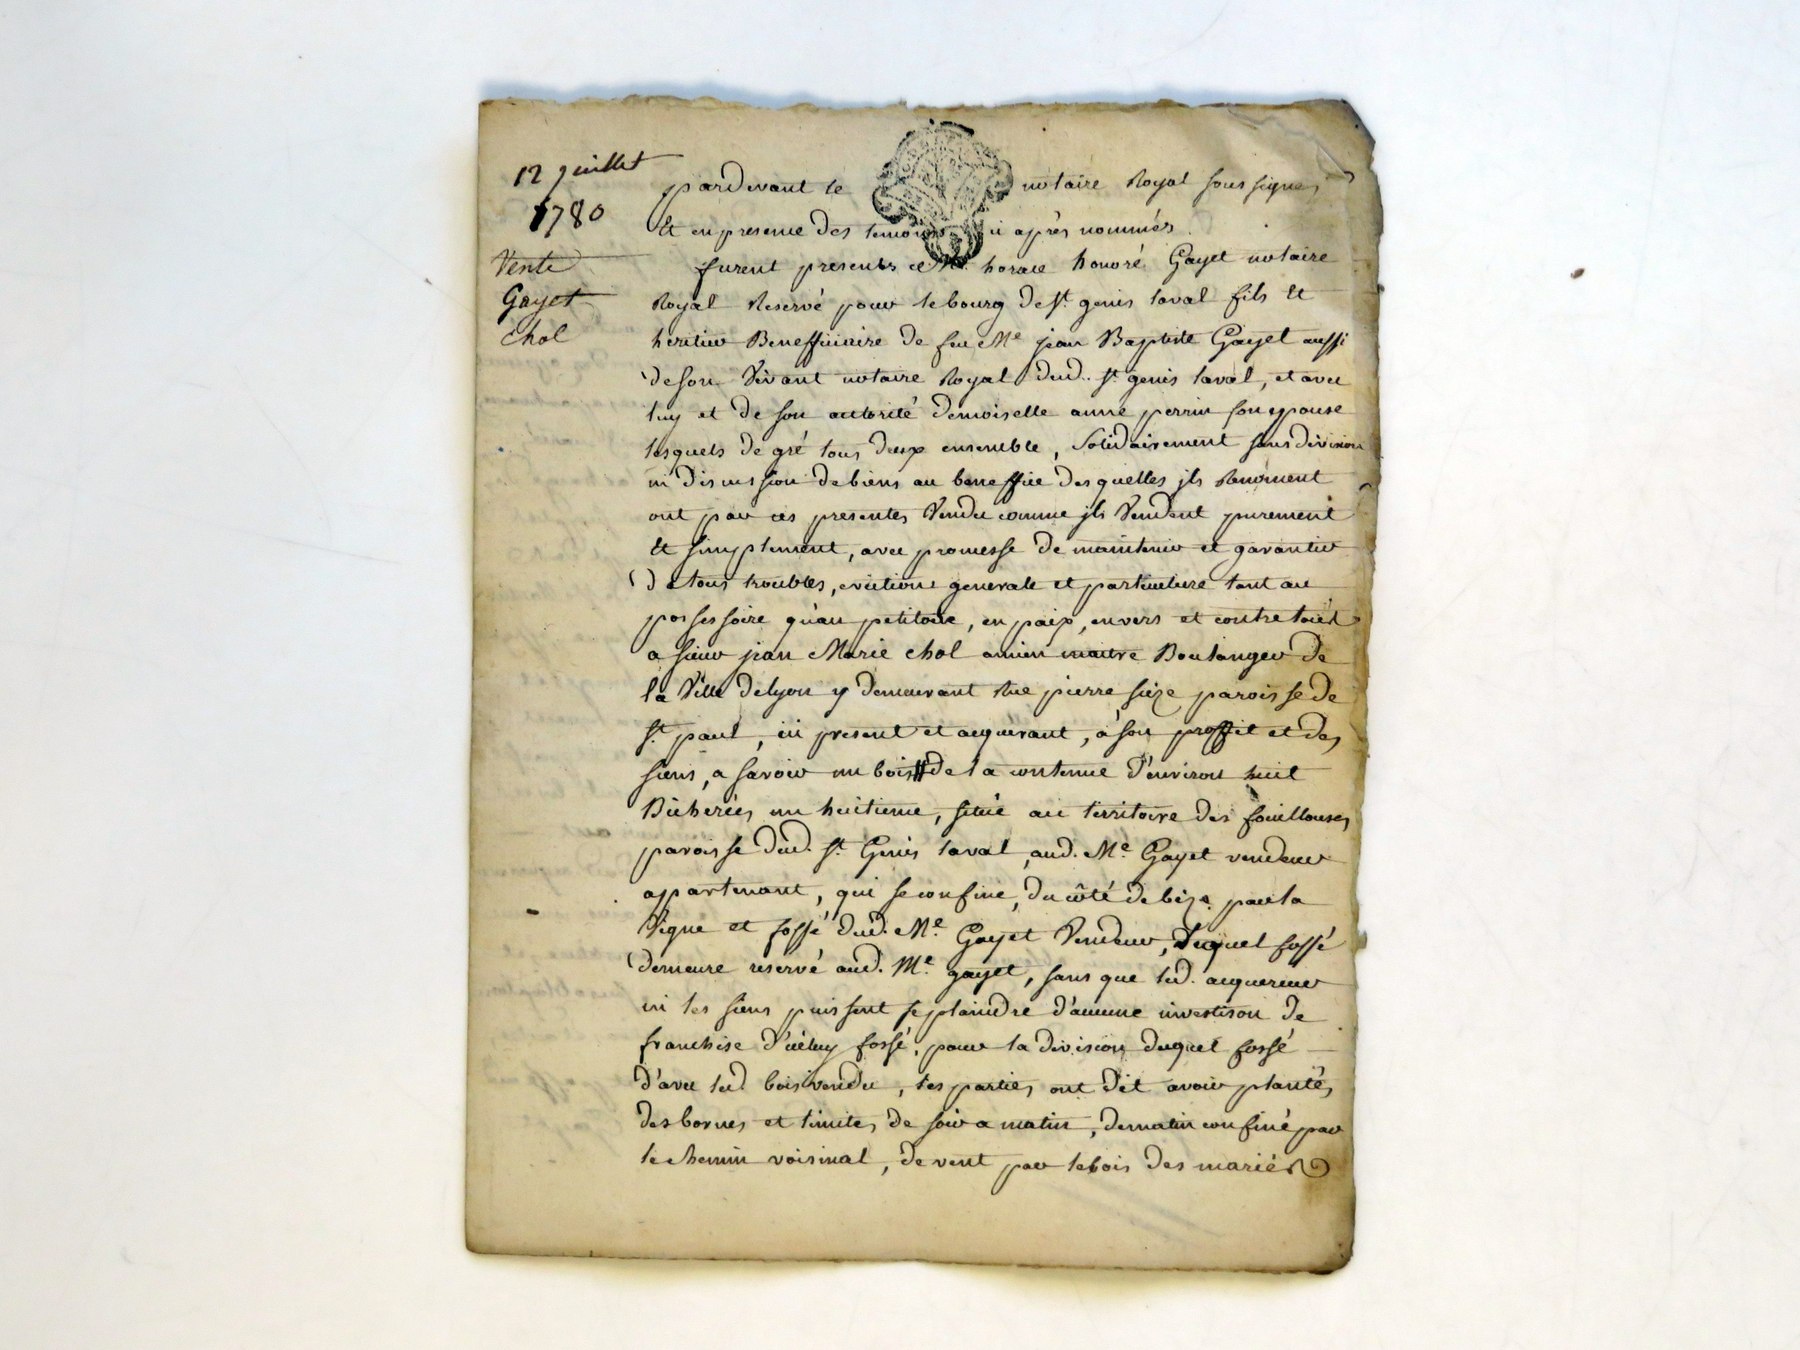 12 juillet
1780
Vente
Gayet
Chol
pardevant le notaire Royal soussigné,
Et en presence des temoins ci après nommés.
furent presents Me. horace honoré Gayet notaire
Royal Reservé pour le bourg de st. genis laval fils Et
heritier Beneffiçiaire de feu Me jean Baptiste Gayet aussi
de son Vivant notaire Royal dud. st. genis laval, et avec
luy et de son autorité demoiselle anne perrin son epouse
lesquels de gré tous deux ensemble, solidairement sans division
ni discussion de biens au beneffice desquelles jls Renoncent
ont par ces presentes Vendu comme jls Vendent purement
Et simplement, avec promesse de maintenir et garantir
de tous troubles, eviction generale et particuliere tant au
possessoire qu'au petitoire, en paix, envers et contre tous
a sieur jean Marie Chol ancien maitre Boulanger de
la Ville de lyon y demeurant Rue pierre size paroisse de
st. paul, ici present et acquerant, à son proffit et des
siens, a savoir un bois # de la contenue d'environ huit
Bicherées un huitieme, situé au territoire des fouillouses
paroisse dud. st. Genis laval, aud. Me. Gayet vendeur
appartenant, qui se confine, du côté de bize par la
Vigne et fossé dud. Me. Gayet Vendeur, Lequel fossé
demeure reservé aud. Me. gayet, sans que led. acquereur
ni les siens puissent se plaindre d'aucune investison de
franchise d'icéluy fossé, pour la division duquel fossé
d'avec led. bois vendu, les parties ont dit avoir plantés
des bornes et limites de soir a matin, de matin confiné par
le chemin voisinal, de vent par le bois des mariés